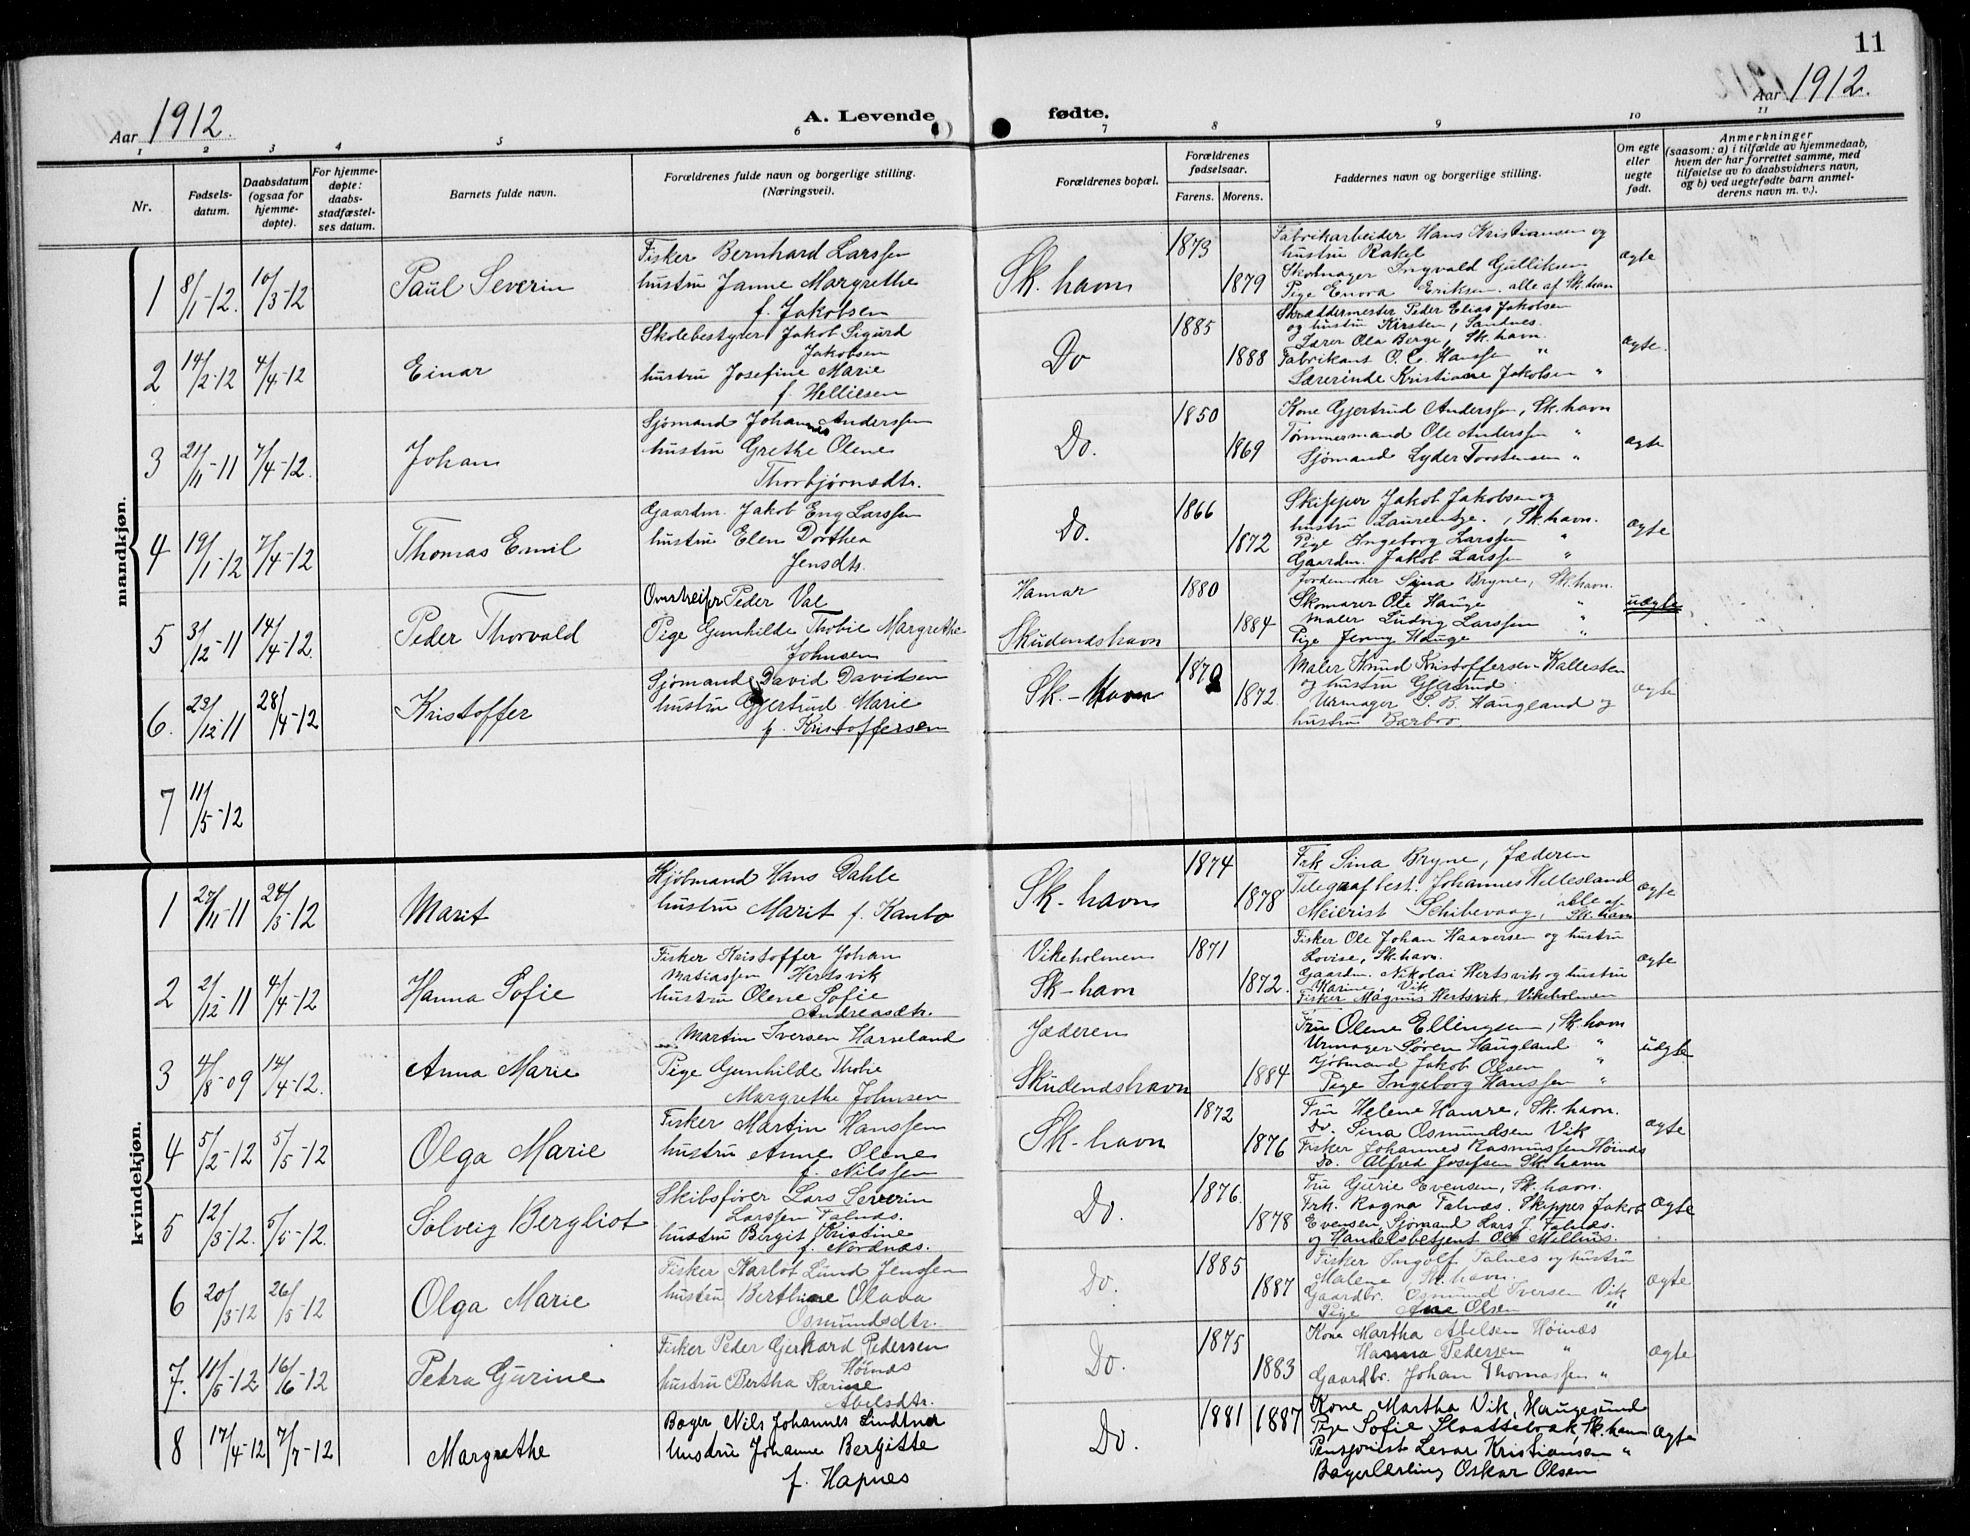 11
Aar 1912.
A. Levende fødte.
Aar 1912.
1 2 3 4 5 6 7 8 9 10 11
Nr.
Fødsels-
datum.
Daabsdatum
(ogsaa for
hjemme-
døpte).
For hjemme-
døpte:
daabs-
stadfæstel-
ses datum.
Barnets fulde navn.
Forældrenes fulde navn og borgerlige stilling.
(Næringsvei).
Forældrenes bopæl.
Forældrenes
fødselsaar.
Farens. Morens.
Faddernes navn og borgerlige stilling.
Om egte
eller
uegte
født.
Anmerkninger
(saasom: a) i tilfælde av hjemmedaab,
hvem der har forrettet samme, med
tilføielse av to daabsvidners navn,
og b) ved uegtefødte barn anmel-
derens navn m. v.).
mandkjøn.
1 8/1-12. 10/3-12 Paul Severin
Fisker Bernhard Larssen
hustru Janne Margrethe
f. Jakobsen
Sk. havn 1873 1879
Fabrikarbeider Hans Kristiansen og
hustru Rakel
Skomager Ingvald Gulliksen
Pige Enora Eriksen. alle af Sk. havn
ægte
2 14/2-12 4/4-12 Einar
Skolebestyrer Jakob Sigurd
Jakobsen
hustru Josefine Marie
f. Helliesen
Do 1885 1888
Skræddermester Peder Elias Jakobsen
og hustru Kirsten, Sandnes.
Lærer Ola Berge, Sk. havn.
Fabrikant O. C. Hanssen "
Lærerinde Kristiane Jakobsen "
ægte.
3 21/11-11 7/4-12. Johan
Sjømand Johannes Anderssen
hustru Grethe Olene
Thorbjørnsdtr.
Do. 1850 1869
Kone Gjertrud Anderssen, Sk. havn
Tømmermand Ole Anderssen "
Sjømand Lyder Torstensen "
ægte
4 19/1-12 7/4-12 Thomas Emil
Gaardm. Jakob Eng Larssen
hustru Elen Dorthea
Jensdtr.
Do. 1866 1872
Skipper Jakob Jakobsen og
hustru Laurentze. , Sk. havn.
Pige Ingeborg Larssen "
Gaardm. Jakob Larssen "
ægte
5 3/12-11 14/4-12. Peder Thorvald
Peder Val
Pige Gunhilde Thobie Margrethe
Johnsen
Hamar
Skudeneshavn
1880 1884
Jordemoder Sina Bryne, Sk. havn.
Skomager Ole Hauge "
Maler Ludvig Larssen "
Pige Jenny Hauge "
uægte
6. 23/12-11 28/4-12 Kristoffer
Sjømand David Davidsen
hustru Gjertrud Marie
f. Kristoffersen
Sk.-Havn 1872.
Maler Knud Kristoffersen-Kallesten
og hustru Gjertrud.
Urmager S. B. Haugland og
hustru Barbro
ægte
7 11/5-12
kvindekjøn.
1 27/11-11 24/3-12 Marit
Kjøbmand Hans Dahle
hustru Marit f. Kanbo
Sk-havn 1874 1878
Frk Sina Bryne, Jæderen
Telegrafbest. Johannes Hellesland
Meierist Schibevaag, alle af
Sk. havn
ægte
2 2/12-11 4/4-12 Hanna Sofie
Fisker Kristoffer Johan
Matiassen Hertsvik
hustru Olene Sofie
Andreasdtr.
Vikeholmen
Sk-havn
1871 1872.
Fisker Ole Johan Haaversen og hustru
Lovise, Sk. havn.
Gaardm. Nikolai Hertsvik og hustru
Karine Vik
Fisker Magnus Hertsvik, Vikeholmen
ægte
3 4/8-09 14/4-12. Anna Marie
Martin Iversen Harveland
Pige Gunhilde Thobie
Margrethe Johnsen
Jæderen
Skudeneshavn
1884
Fru Olene Ellingsen, Sk. havn
Urmager Søren Haugland "
Kjøbmand Jakob Olsen "
Pige Ingeborg Hanssen "
uægte
4 5/2-12 5/5-12 Olga Marie
Fisker Martin Hanssen
hustru Anne Olene
f. Nilssen
Sk-havn 1872 1876
Fru Helene Hamre, Sk. havn.
Do. Sina Osmundsen Vik
Fisker Johannes Rasmussen Høinæs
Do. Alfred Josefsen Sk. havn
ægte
5 12/3-12. 5/5-12. Solveig Bergliot
Skibsfører Lars Severin
Larssen Falnæs.
hustru Birgit Kristine
f. Nordnæs.
Do. 1876. 1878
Fru Gurie Evensen, Sk. havn.
Frk. Ragna Falnæs. Skipper Jakob
Evensen, Sjømand Lars J. Falnæs.
og Handelsbetjent Ole Mellius.
ægte
6 20/3-12 26/5-12 Olga Marie
Fisker Karlot Lund Jenssen
hustru Berthine Olava
Osmundsdtr.
Do. 1885 1887
Fisker Ingolf Falnes og hustru
Malene Sk. havn
Gaardbr. Osmund Iversen Vik
Pige Ane Olsen "
ægte
7. 11/5-12 16/6-12 Petra Gurine
Fisker Peder Gerhard Pedersen
Høinæs
hustru Bertha Karine
Abelsdtr.
Do. 1875 1883
Kone Martha Abelsen Høinæs
Hanna Pedersen "
Gaardbr. Johan Thomassen "
ægte
8 17/4-12 7/7-12 Margrethe
Bager Nils Johannes Lindtner
Hustru Johanne Bergitte
f. Hapnes
Do. 1881 1887
Kone Martha Vik, Haugesund
Pige Sofie Slaattebrak, Sk. havn
Levar Kristiansen "
Bagerlærling Oskar Olsen
ægte